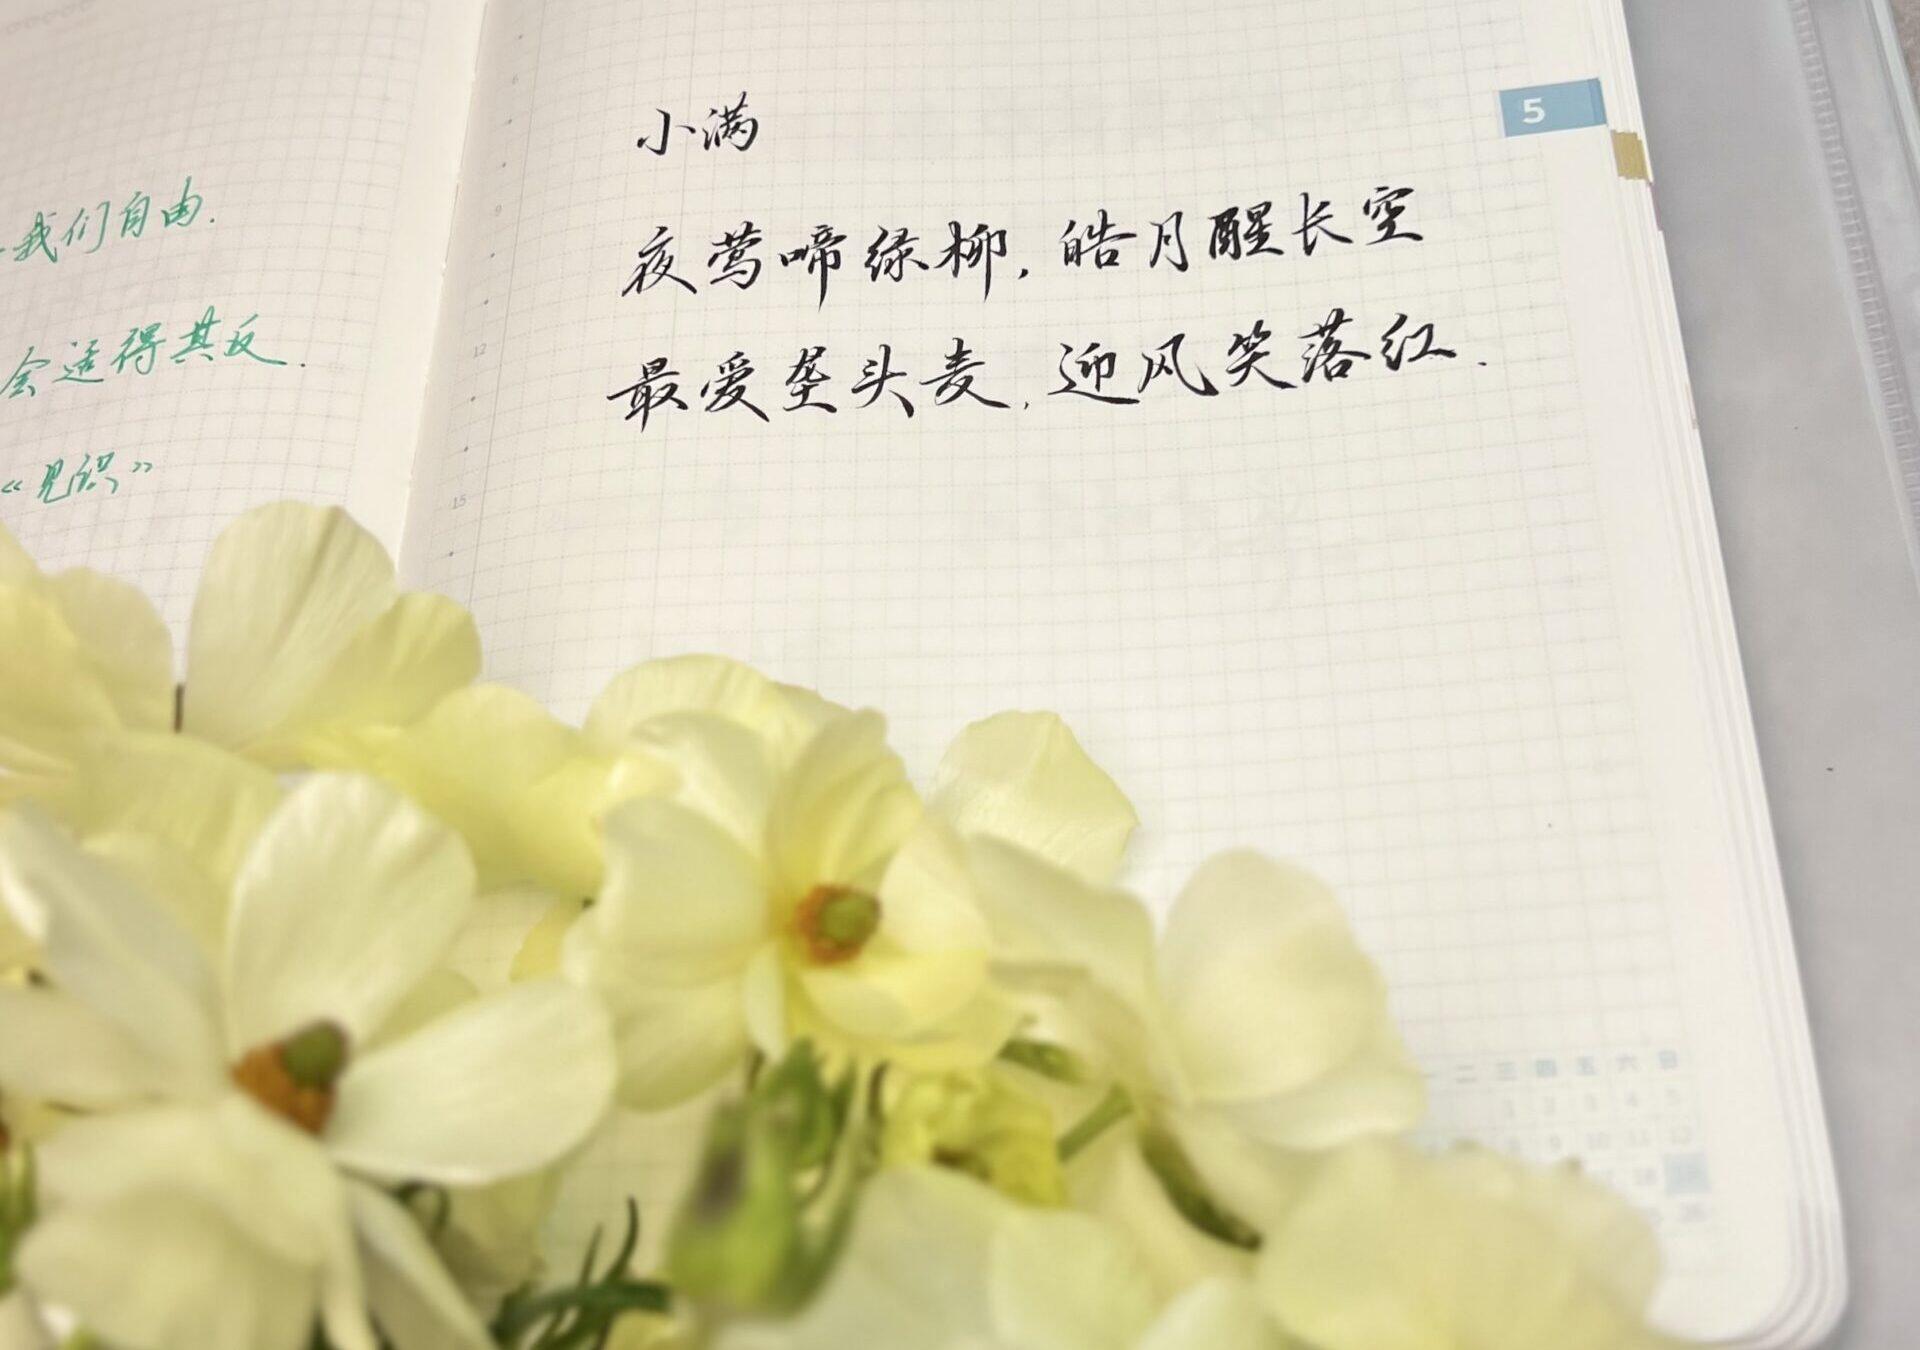 我们自由.
会适得其反.
《见识》
5
小满
夜莺啼绿柳,皓月醒长空
最爱垄头麦,迎风笑落红.
6
9
12
15
一 二 三 四 五 六 日
1 2 3 4 5
8 9 10 11 12
18
26